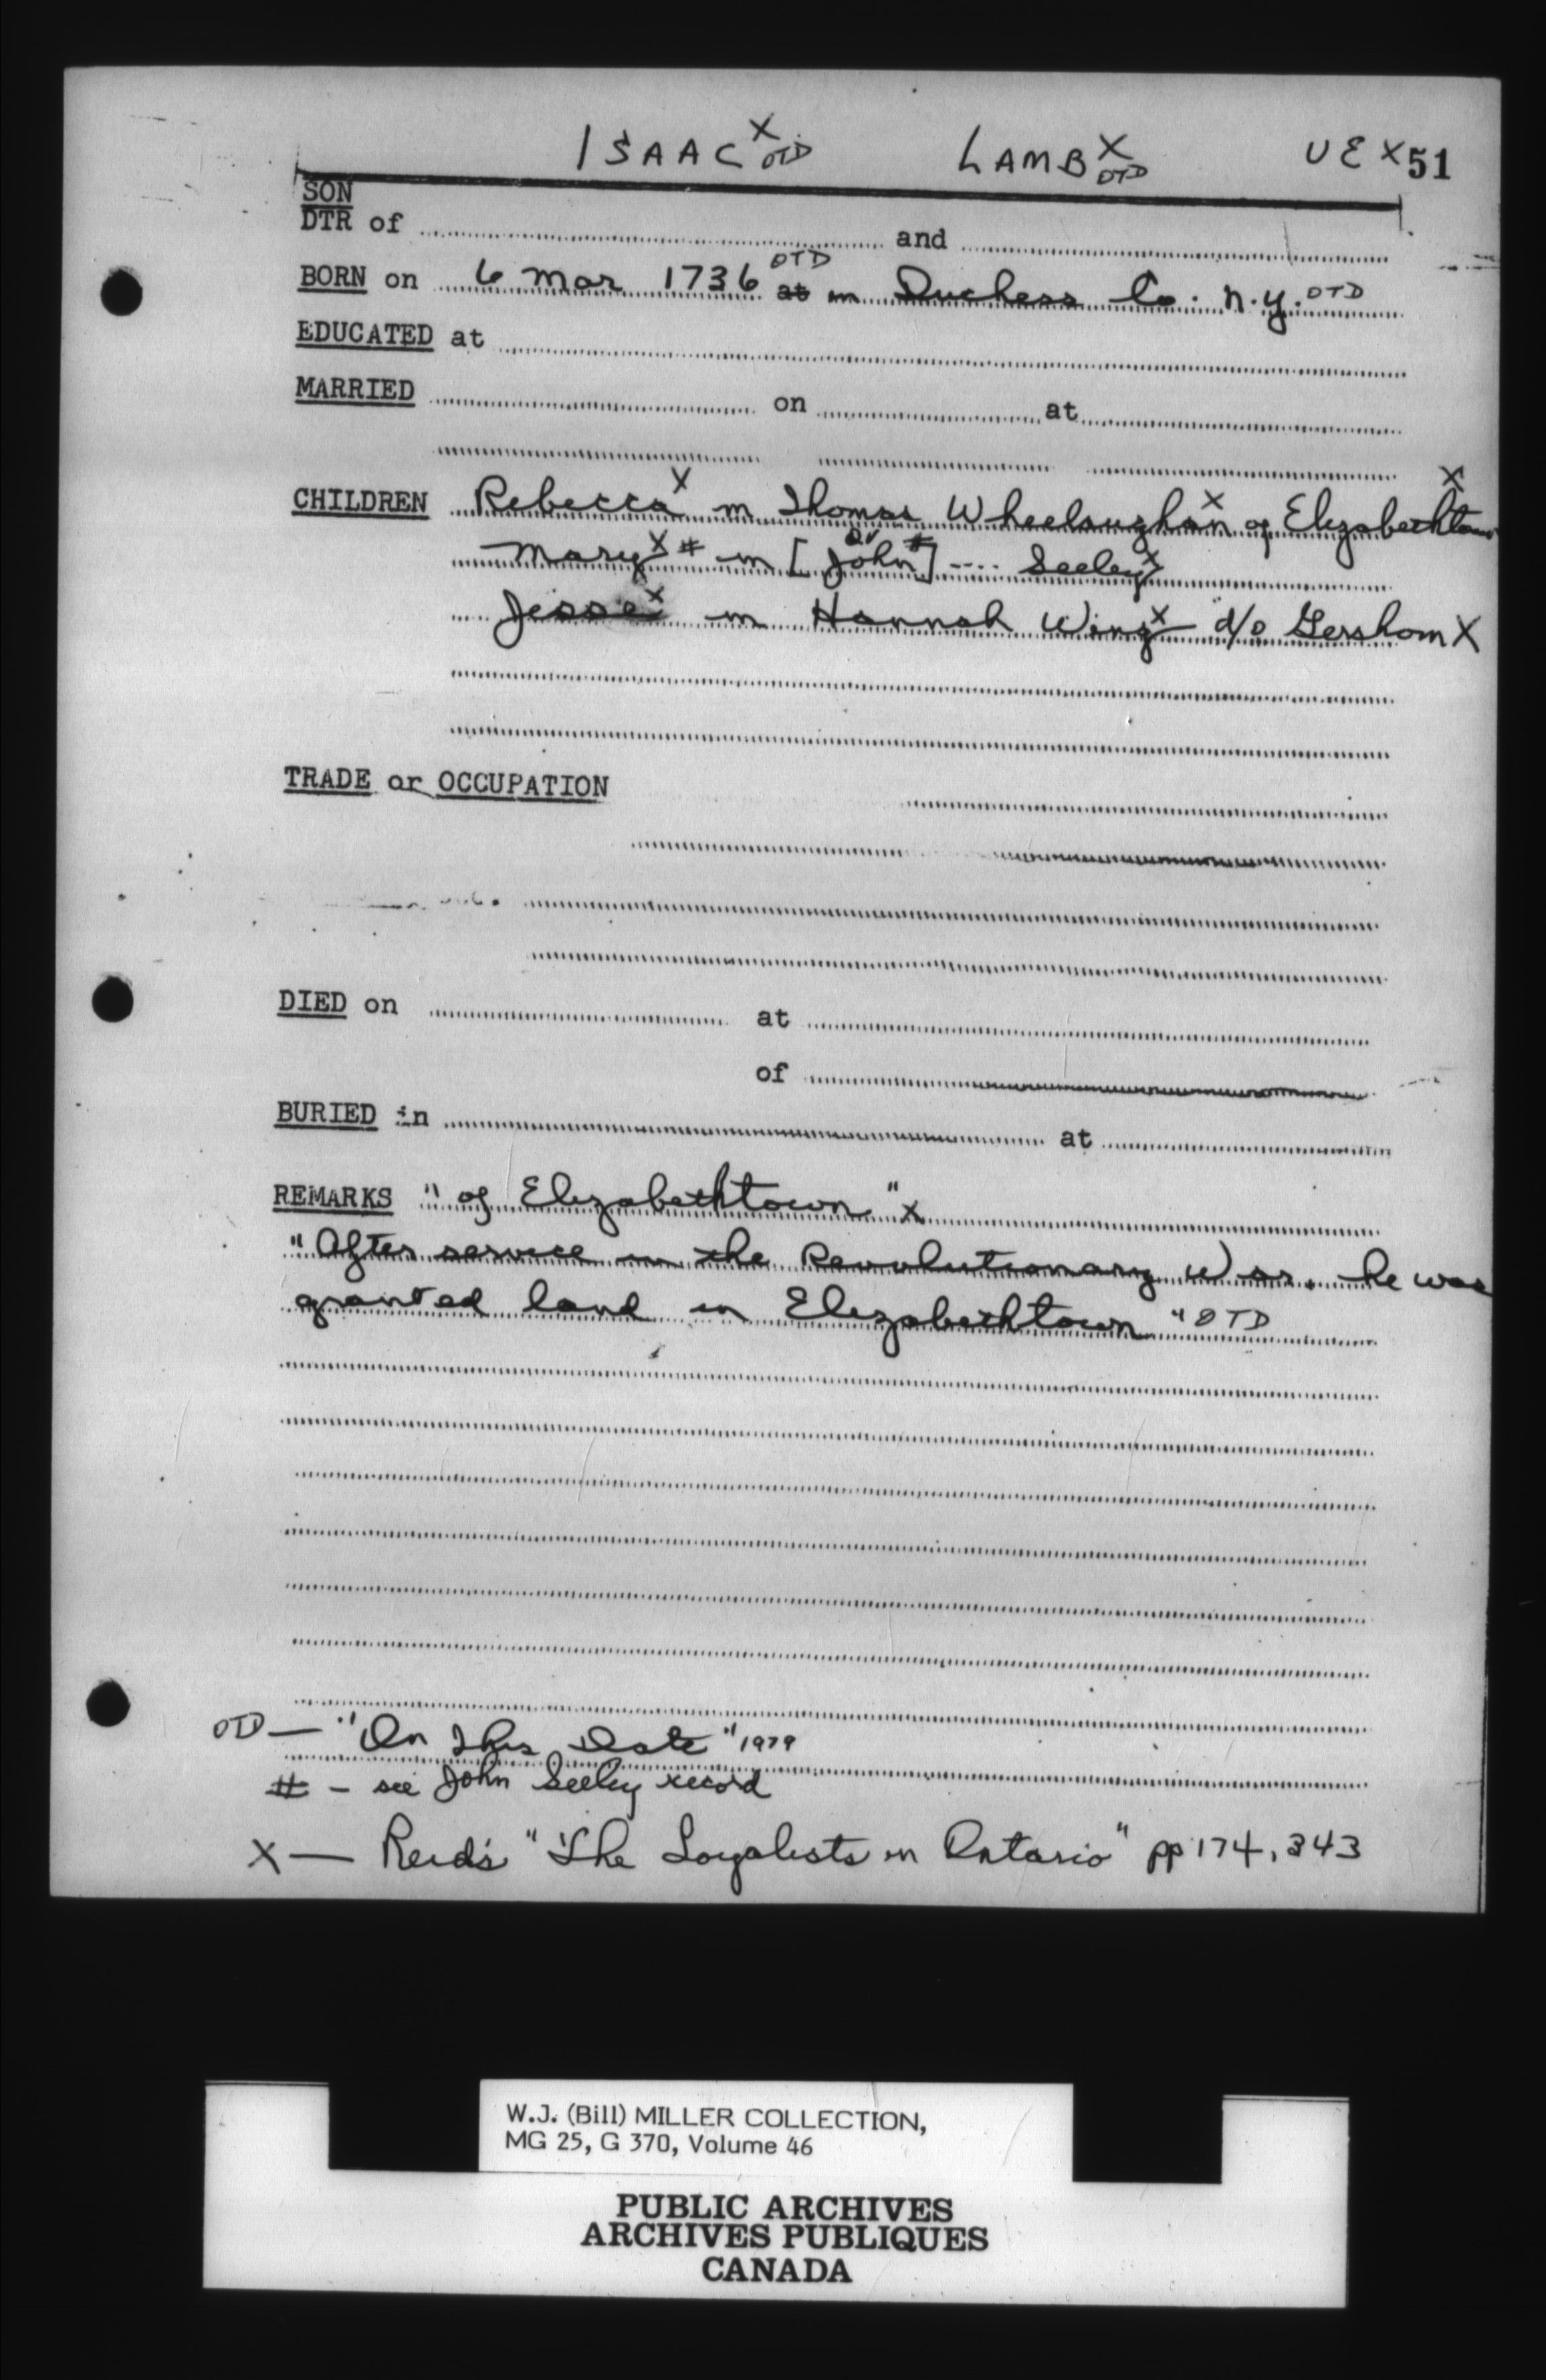 ISAAC X OTD LAMB X OTD UE X 51
SON
DTR of and
BORN on 6 Mar 1736 OTD at in Duchess Co. N.Y. OTD
EDUCATED at
MARRIED on at
CHILDREN Rebecca X m Thomas Wheelaughan X of Elizabethtown X
Mary X # m [John #] .... Seeley X
Jesse X m Hannah Wing X d/o Gershom X
TRADE or OCCUPATION
DIED on at
of
BURIED in at
REMARKS "of Elizabethtown" X
"After service in the Revolutionary War, he was
granted land in Elizabethtown" OTD
OTD — "On This Date" 1979
# - see John Seeley record
X — Reid's "The Loyalists in Ontario" pp 174, 343
W.J. (Bill) MILLER COLLECTION,
MG 25, G 370, Volume 46
PUBLIC ARCHIVES
ARCHIVES PUBLIQUES
CANADA